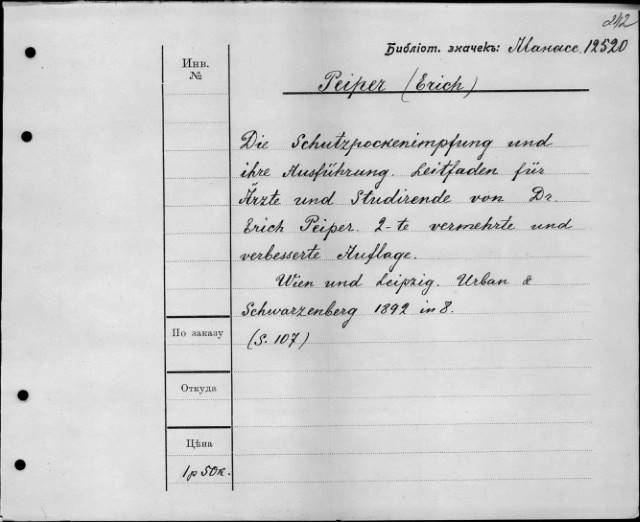 242
Библіот. значекъ: Манасс. 12520
Инв.
№
Peiper (Erich)
Die Schutzpockenimpfung und
ihre Ausführung. Leitfaden für
Ärzte und Studirende von Dr.
Erich Peiper. 2-te vermehrte und
verbesserte Auflage.
Wien und Leipzig. Urban &
Schwarzenberg 1892 in 8.
(S. 107)
По заказу
Откуда
Цѣна
1 р 50 к.